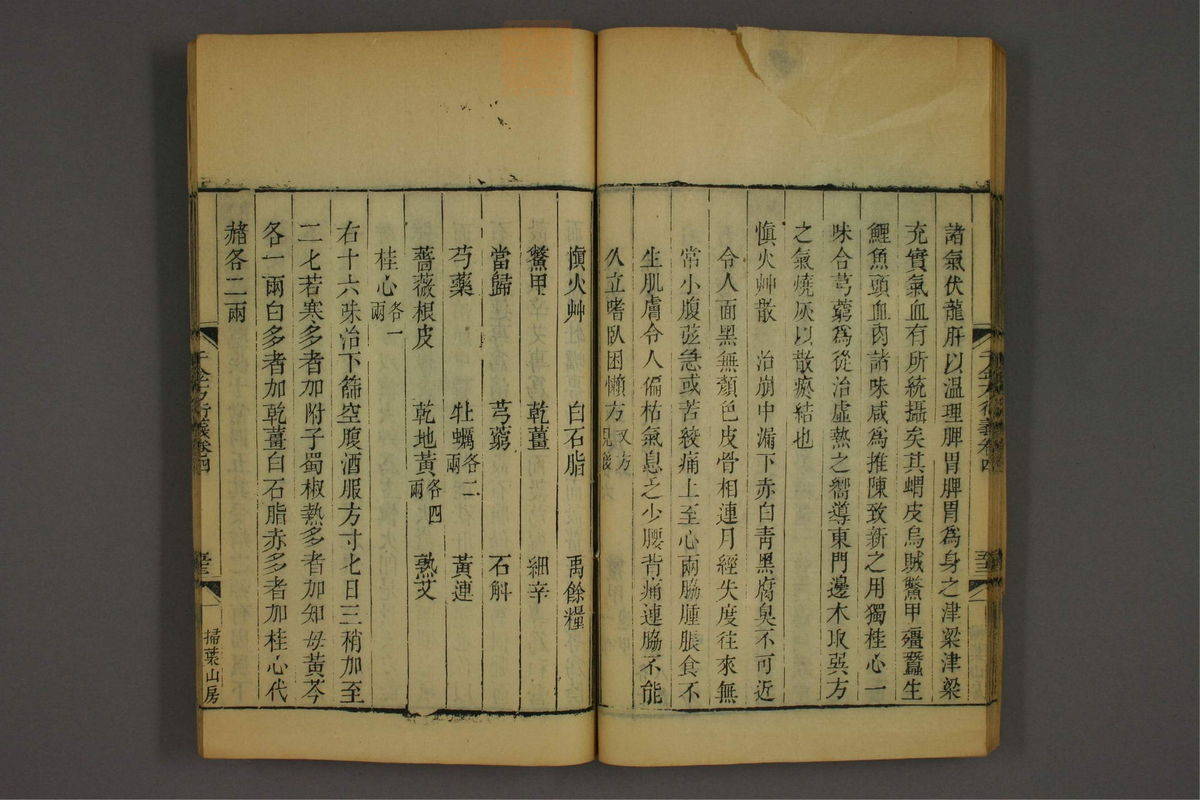 諸氣伏龍肝以温理脾胃脾胃爲身之津梁津梁
充實氣血有所統攝矣其蝟皮烏賊鱉甲殭蠶生
鯉魚頭血肉諸味咸爲推陳致新之用獨桂心一
味合芎藭爲從治虛熱之嚮導東門邊木取巽方
之氣燒灰以散瘀結也
愼火艸散 治崩中漏下赤白靑黑腐臭不可近
令人面黑無顏色皮骨相連月經失度往來無
常小腹弦急或苦絞痛上至心兩脇腫脹食不
生肌膚令人偏枯氣息乏少腰背痛連脇不能
久立嗜臥困懶方又方見後
愼火艸 白石脂 禹餘糧
鱉甲 乾薑 細辛
當歸 芎藭 石斛
芍藥 牡蠣各二兩 黃連
薔薇根皮 乾地黃各四兩 熟艾
桂心各一兩
右十六味治下篩空腹酒服方寸七日三稍加至
二七若寒多者加附子蜀椒熱多者加知母黃芩
各一兩白多者加乾薑白石脂赤多者加桂心代
赭各二兩
千金方衍義卷四
掃葉山房